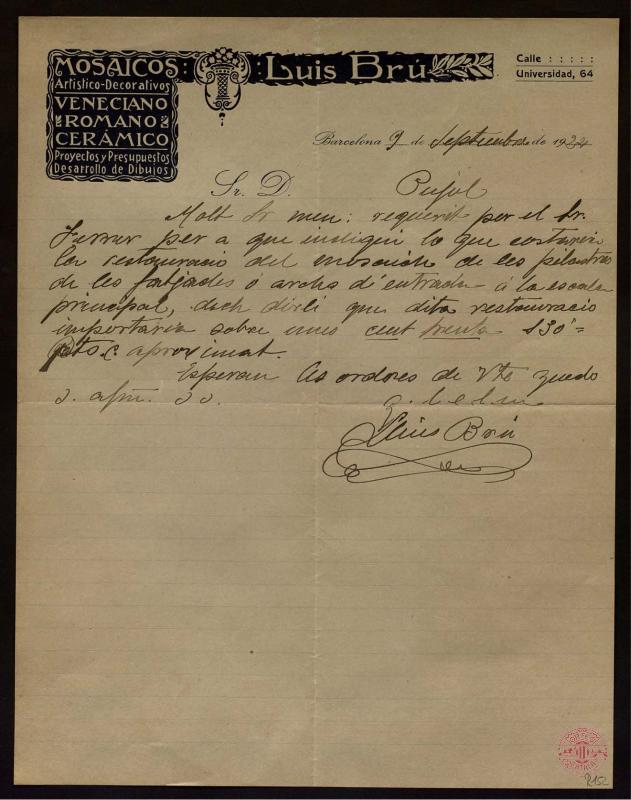 MOSAICOS
Artístico-Decorativos
VENECIANO
ROMANO
CERÁMICO
Proyectos y Presupuestos
Desarrollo de Dibujos
Luis Brú
Calle : : : : :
Universidad, 64
Barcelona 9 de Septiembre de 1924
Sr. D. Pujol
Molt Sr meu: requerit per el Sr.
Ferrer per a que indiqui lo que costaria
la restauració del mosaich de les pilastres
de les fatjades ó archs d'entrada á la escala
principal, dech dirli que dita restauració
importaria sobre unes cent trenta 130'=
pts. aproximat.
Esperan les ordres de Vte quedo
s. afm. s.s.
q. b. s. m.
Lluis Brú
R152